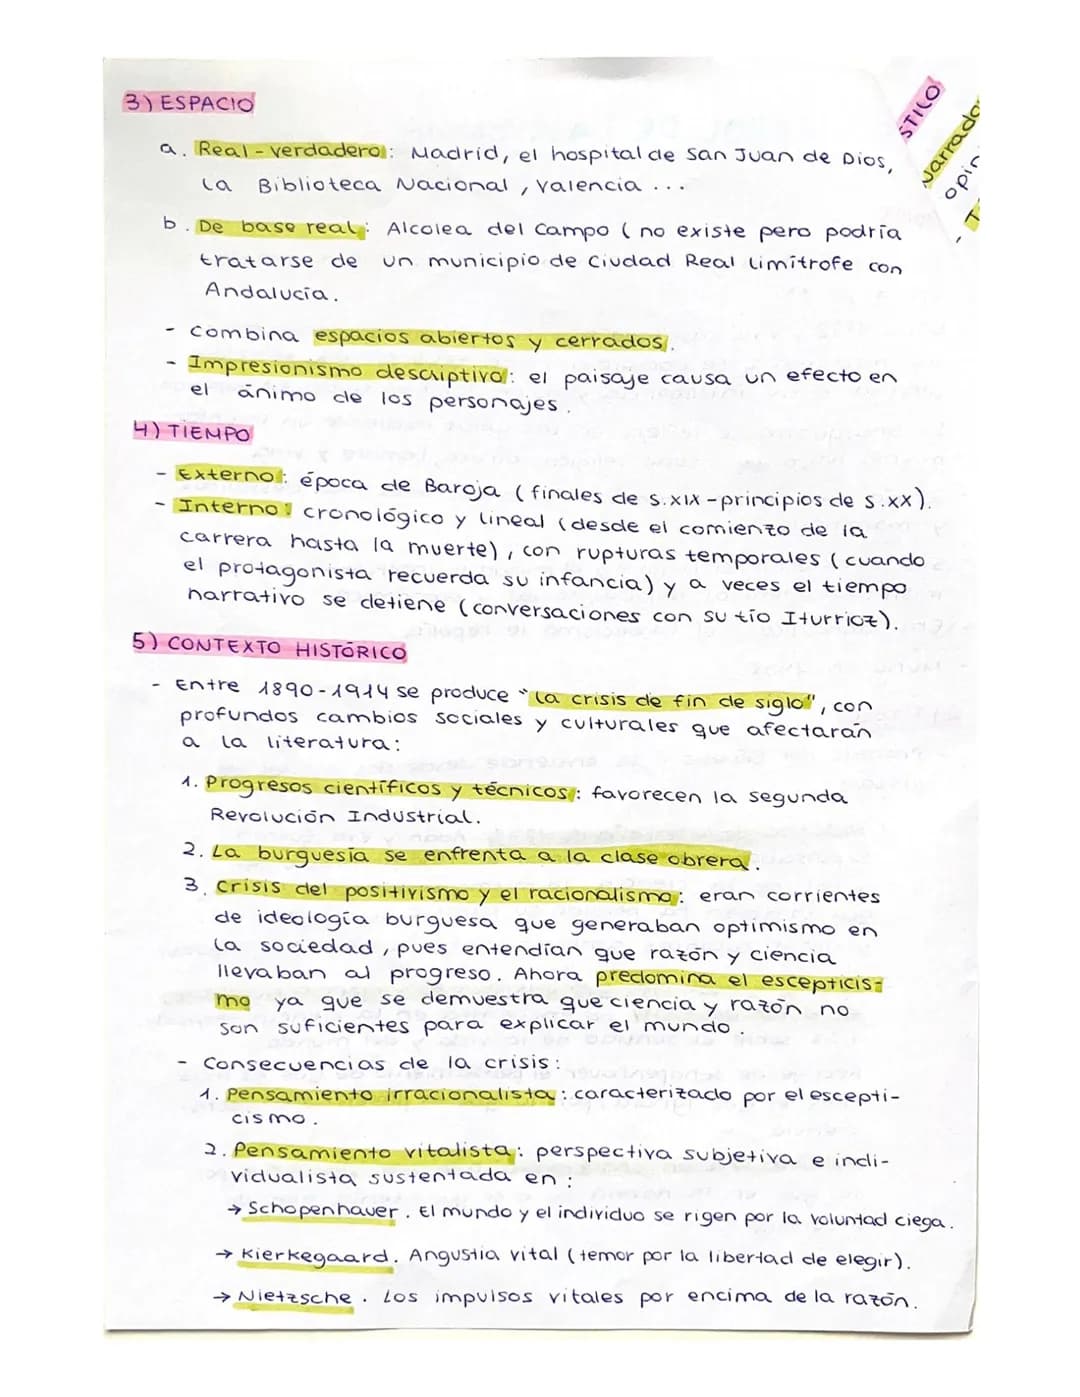 3) ESPACIO
a. Real-verdadero: Madrid, el hospital de San Juan de Dios,
La Biblioteca Nacional, Valencia ...
b. De base real: Alcolea del Campo (no existe pero podría
tratarse de un municipio de Ciudad Real limítrofe con
Andalucía.
- Combina espacios abiertos y cerrados.
- Impresionismo descriptivo: el paisaje causa un efecto en
el ánimo de los personajes.
4) TIEMPO
- Externo: época de Baroja (finales de s.XIX-principios de s.XX).
- Interno: cronológico y lineal (desde el comienzo de la
carrera hasta la muerte), con rupturas temporales (cuando
el protagonista recuerda su infancia) y a veces el tiempo
narrativo se detiene (conversaciones con su tío Iturrioz).
5) CONTEXTO HISTÓRICO
- Entre 1890-1914 se produce "la crisis de fin de siglo", con
profundos cambios sociales y culturales que afectarán
a la literatura:
1. Progresos científicos y técnicos: favorecen la segunda
Revolución Industrial.
2. La burguesía se enfrenta a la clase obrera.
3. Crisis del positivismo y el racionalismo: eran corrientes
de ideología burguesa que generaban optimismo en
la sociedad, pues entendían que razón y ciencia
llevaban al progreso. Ahora predomina el escepticis-
mo ya que se demuestra que ciencia y razón no
son suficientes para explicar el mundo.
- Consecuencias de la crisis:
1. Pensamiento irracionalista: caracterizado por el escepti-
cismo.
2. Pensamiento vitalista: perspectiva subjetiva e indi-
vidualista sustentada en:
→ Schopenhauer. El mundo y el individuo se rigen por la voluntad ciega.
→ Kierkegaard. Angustia vital (temor por la libertad de elegir).
→ Nietzsche. Los impulsos vitales por encima de la razón.
STILO
Narrador
opin